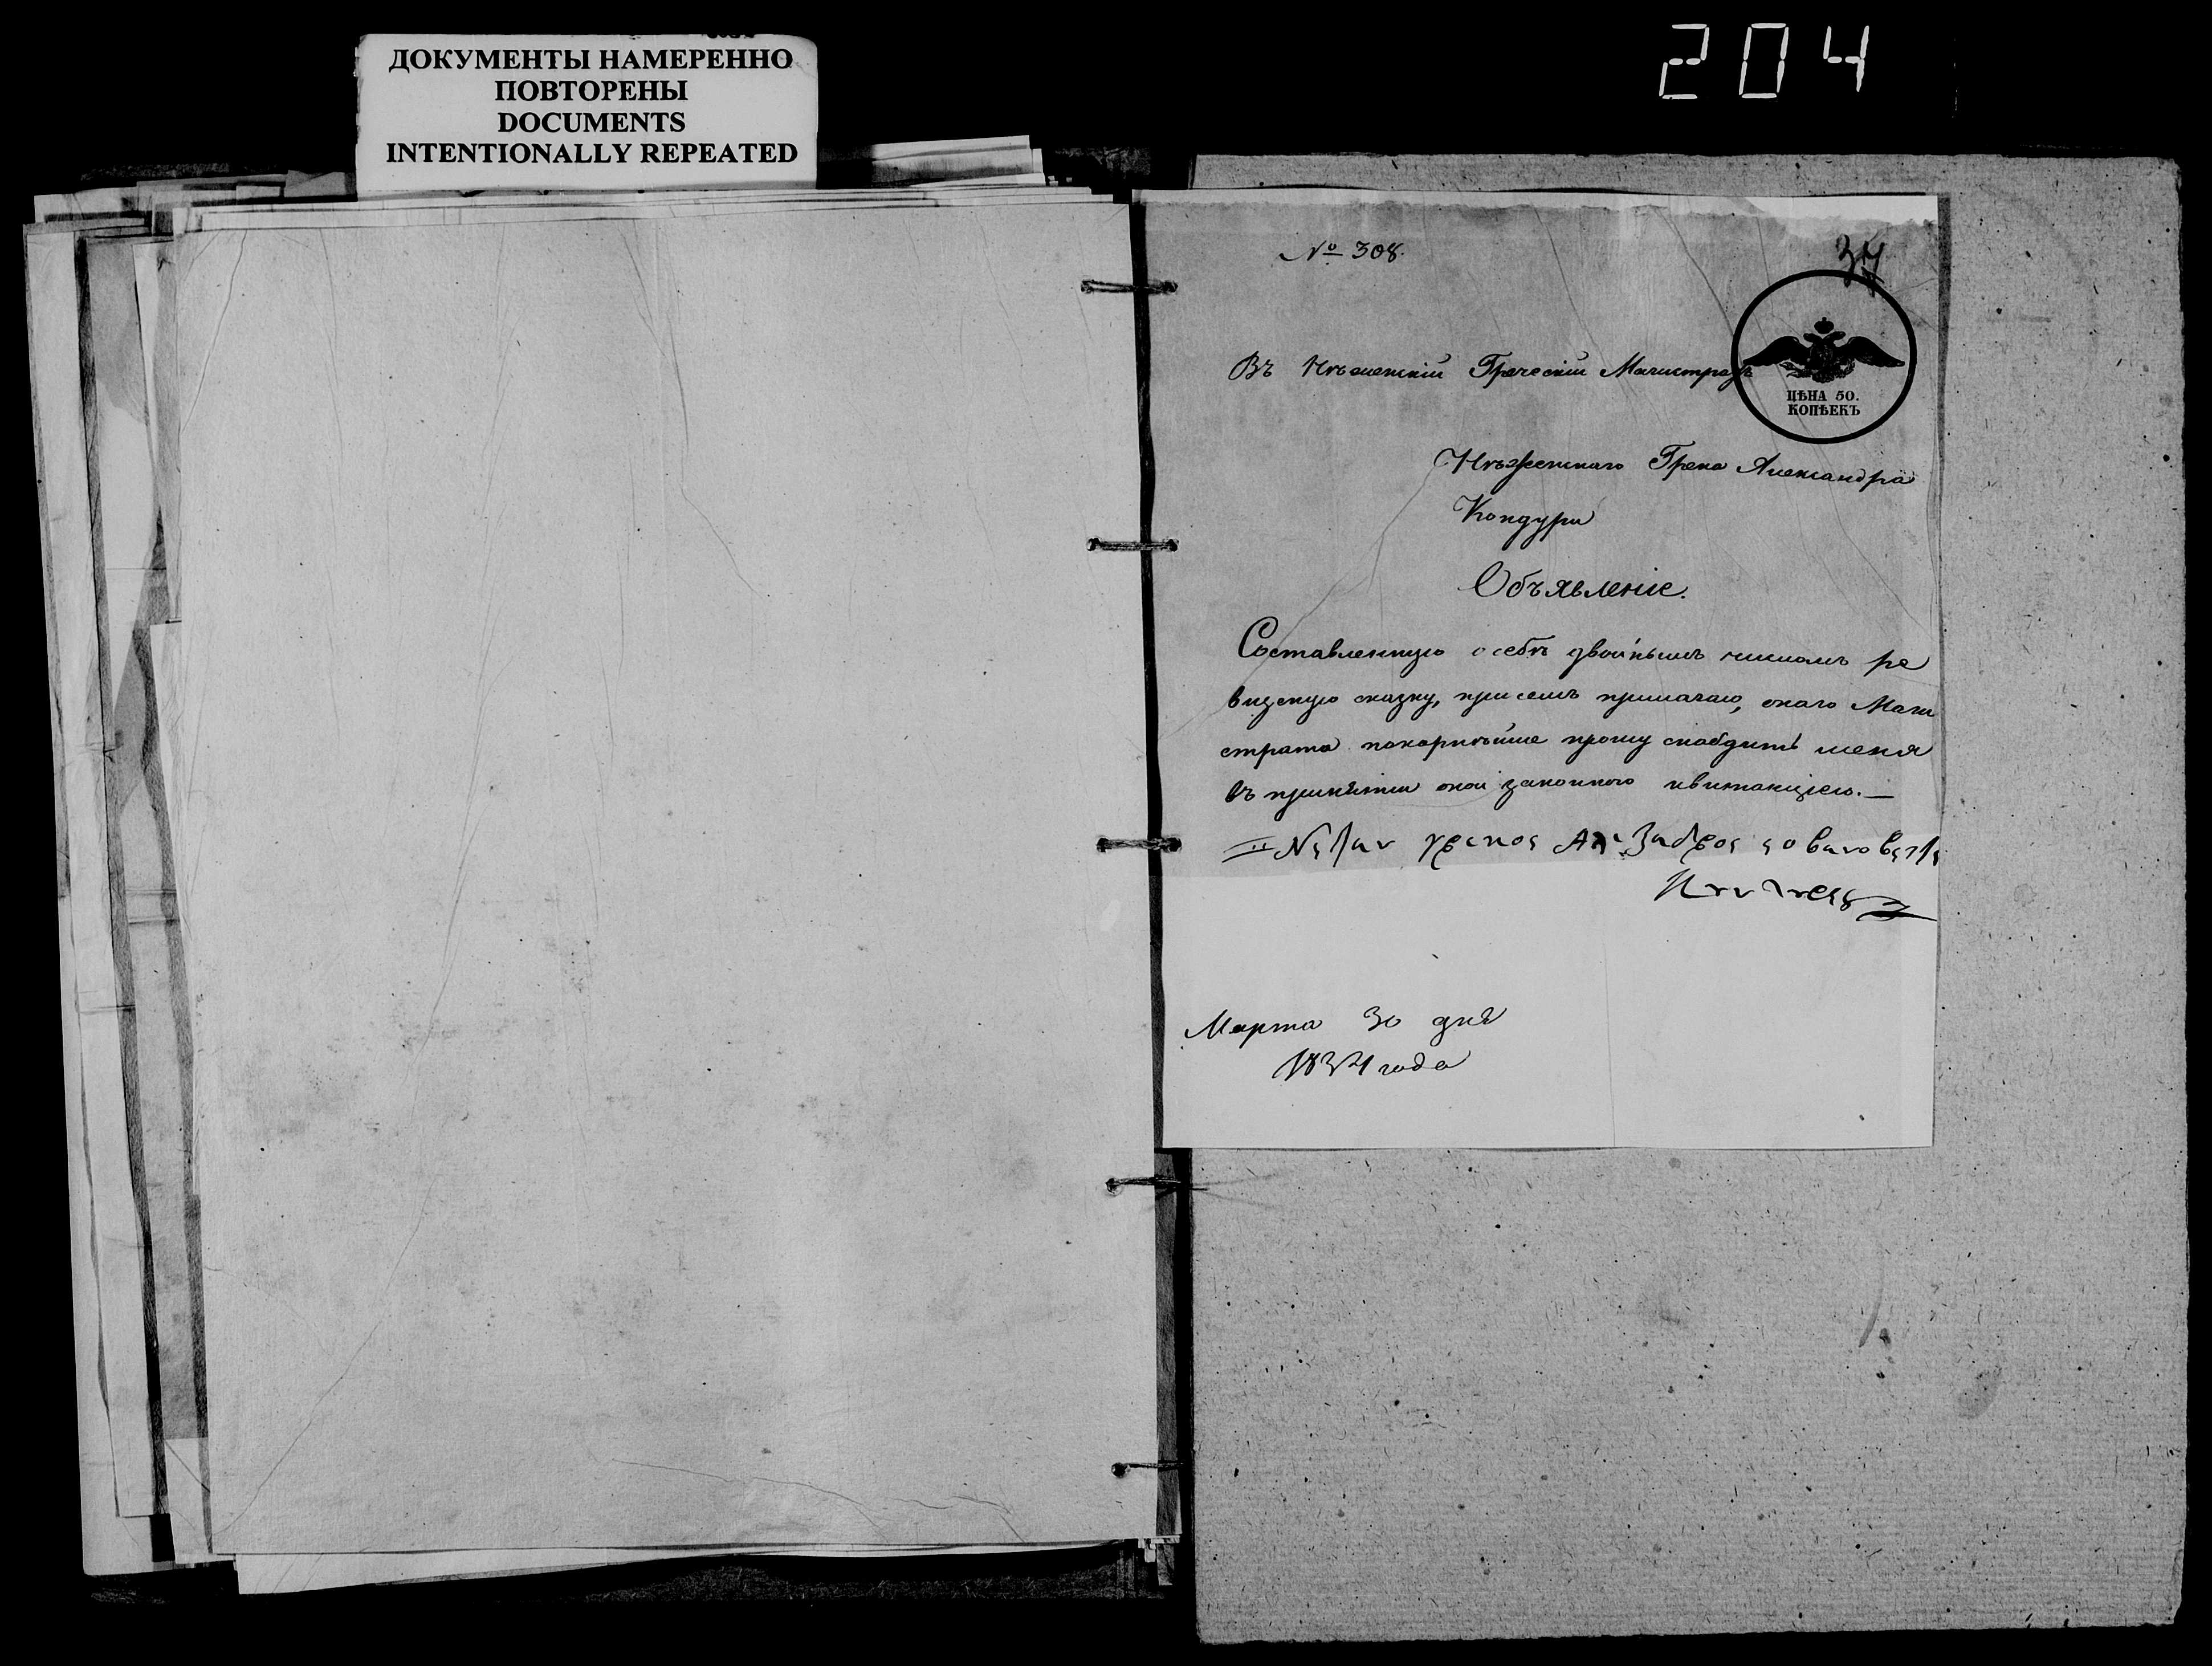 ДОКУМЕНТЫ НАМЕРЕННО
ПОВТОРЕНЫ
DOCUMENTS
INTENTIONALLY REPEATED
204
№ 308.
37
Въ Нѣженскій Греческій Магистратъ
ЦѢНА 50.
КОПѢЕКЪ
Нѣженскаго Грека Александра
Кондури
Объявленіе.
Составленную о себѣ двойнымъ числомъ ре
визскую сказку, при семъ прилагаю, онаго Маги
страта покорнѣйше прошу снабдить меня
въ принятіи оной законною квитанціею.—
Марта 30 дня
1834 года